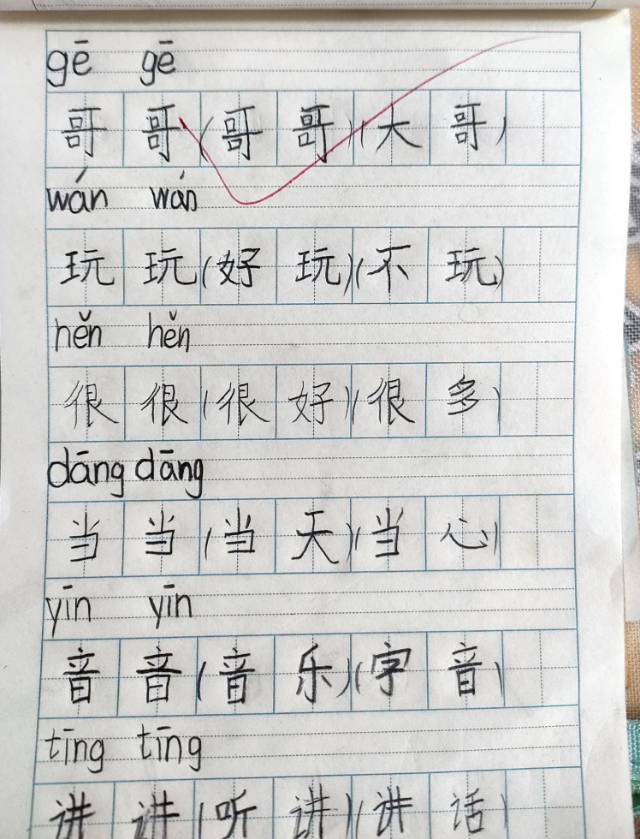 gē gē
哥 哥 (哥 哥) (大 哥)
wán wán
玩 玩 (好 玩) (不 玩)
hěn hěn
很 很 (很 好) (很 多)
dāng dāng
当 当 (当 天) (当 心)
yīn yīn
音 音 (音 乐) (字 音)
tīng tīng
讲 讲 (听 讲) (讲 话)